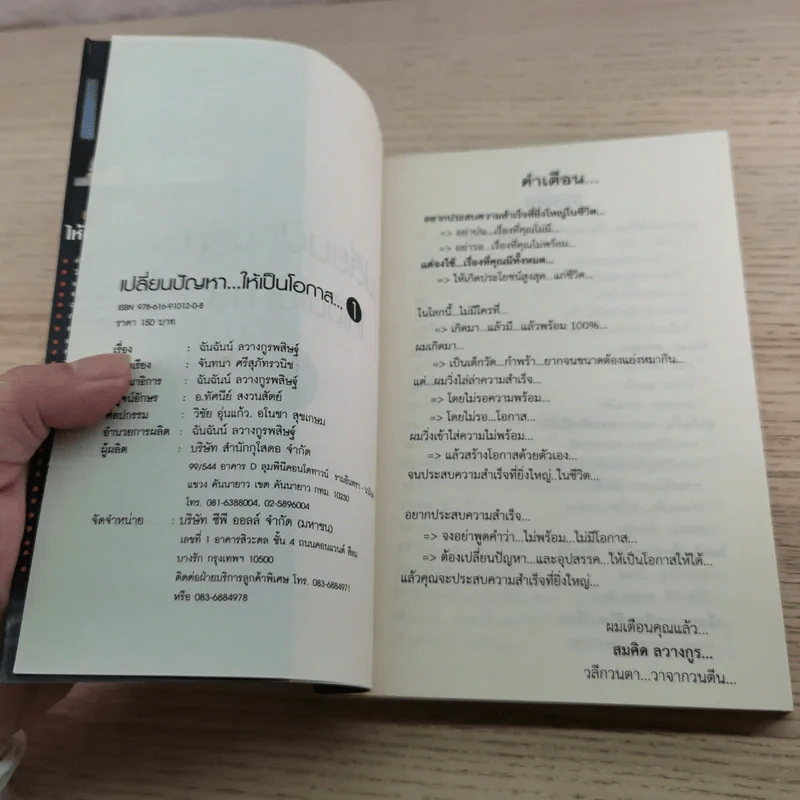 เปลี่ยนปัญหา...ให้เป็นโอกาส... 1
ISBN 978-616-91012-0-8
ราคา 150 บาท
เรื่อง : ฉันฉันน์ ลวางกูรพสิษฐ์
เรียง : จันทนา ศรีสุภัทรวนิช
าธิการ : ฉันฉันน์ ลวางกูรพสิษฐ์
จน์อักษร : อ.ทัศนีย์ สงวนสัตย์
ศิลปกรรม : วิชัย อุ่นแก้ว, อโนชา สุขเกษม
อำนวยการผลิต : ฉันฉันน์ ลวางกูรพสิษฐ์
ผู้ผลิต : บริษัท สำนักกุโสดอ จำกัด
99/544 อาคาร D ลุมพินีคอนโดทาวน์ รามอินทรา -
แขวง คันนายาว เขต คันนายาว กทม. 10230
โทร. 081-6388004, 02-5896004
จัดจำหน่าย : บริษัท ซีพี ออลล์ จำกัด (มหาชน)
เลขที่ 1 อาคารสิวะดล ชั้น 4 ถนนคอนแวนต์ สีลม
บางรัก กรุงเทพฯ 10500
ติดต่อฝ่ายบริการลูกค้าพิเศษ โทร. 083-6884971
หรือ 083-6884978
คำเตือน...
อยากประสบความสำเร็จที่ยิ่งใหญ่ในชีวิต...
=> อย่าบ่น...เรื่องที่คุณไม่มี...
=> อย่ารอ...เรื่องที่คุณไม่พร้อม...
แต่จงใช้...เรื่องที่คุณมีทั้งหมด...
=> ให้เกิดประโยชน์สูงสุด...แก่ชีวิต...
ในโลกนี้...ไม่มีใครที่...
=> เกิดมา...แล้วมี...แล้วพร้อม 100%...
ผมเกิดมา...
=> เป็นเด็กวัด...กำพร้า...ยากจนขนาดต้องแย่งหมากิน...
แต่...ผมวิ่งไล่ล่าความสำเร็จ...
=> โดยไม่รอความพร้อม...
=> โดยไม่รอ...โอกาส...
ผมวิ่งเข้าใส่ความไม่พร้อม...
=> แล้วสร้างโอกาสด้วยตัวเอง...
จนประสบความสำเร็จที่ยิ่งใหญ่..ในชีวิต...
อยากประสบความสำเร็จ...
=> จงอย่าพูดคำว่า...ไม่พร้อม...ไม่มีโอกาส...
=> ต้องเปลี่ยนปัญหา...และอุปสรรค...ให้เป็นโอกาสให้ได้...
แล้วคุณจะประสบความสำเร็จที่ยิ่งใหญ่...
ผมเตือนคุณแล้ว...
สมคิด ลวางกูร...
วลีกวนตา...วาจากวนตีน...